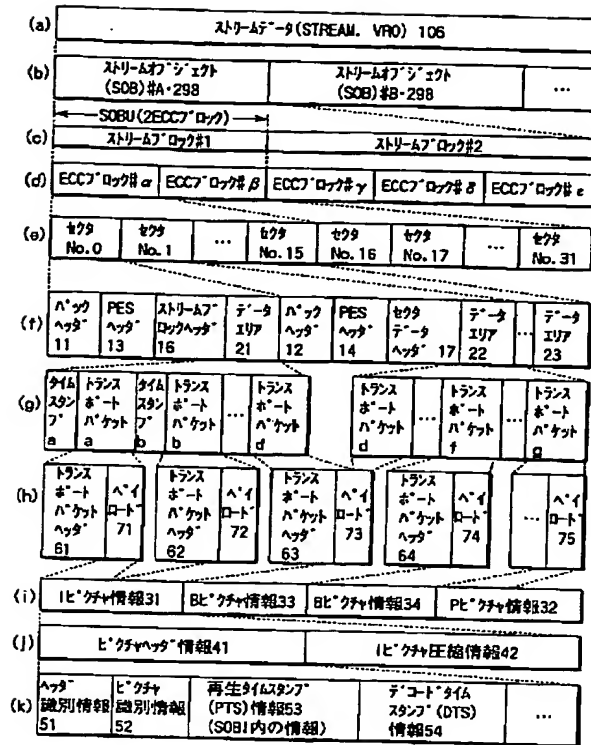 (a) ストリームデータ(STREAM. VRO) 106
(b) ストリームオブジェクト (SOB)#A・298 ストリームオブジェクト (SOB)#B・298 ...
SOBU(2ECCブロック)
(c) ストリームブロック#1 ストリームブロック#2
(d) ECCブロック#α ECCブロック#β ECCブロック#γ ECCブロック#δ ECCブロック#ε
(e) セクタ No.0 セクタ No.1 ... セクタ No.15 セクタ No.16 セクタ No.17 ... セクタ No.31
(f) パックヘッダ 11 PESヘッダ 13 ストリームブロックヘッダ 16 データエリア 21 パックヘッダ 12 PESヘッダ 14 セクタデータヘッダ 17 データエリア 22 ... データエリア 23
(g) タイムスタンプ a トランスポートパケット a タイムスタンプ b トランスポートパケット b ... トランスポートパケット d トランスポートパケット d ... トランスポートパケット f ... トランスポートパケット g
(h) トランスポートパケットヘッダ 61 ペイロード 71 トランスポートパケットヘッダ 62 ペイロード 72 トランスポートパケットヘッダ 63 ペイロード 73 トランスポートパケットヘッダ 64 ペイロード 74 ... ペイロード 75
(i) Iピクチャ情報31 Bピクチャ情報33 Bピクチャ情報34 Pピクチャ情報32
(j) ピクチャヘッダ情報41 Iピクチャ圧縮情報42
(k) ヘッダ識別情報 51 ピクチャ識別情報 52 再生タイムスタンプ(PTS)情報53 (SOBI内の情報) デコードタイムスタンプ(DTS)情報54 ...